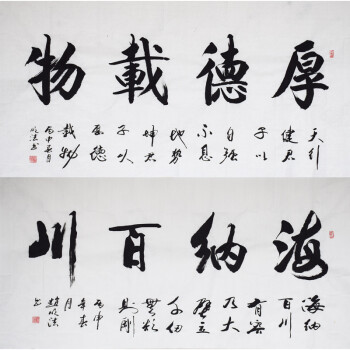 厚德載物
天行
健君
子以
自强
不息
地勢
坤君
子以
厚德
載物
丙申
海納百川
海納
百川
有容
乃大
壁立
千仞
無欲
則剛
丙申
年春
月